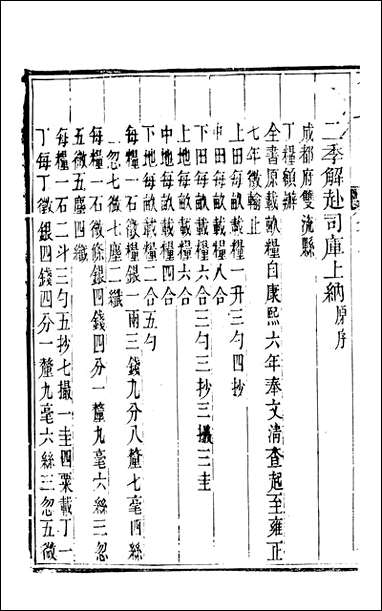 二季解赴司庫上納原序
成都府雙流縣
丁糧額辦
全書原載畝糧自康熙六年奉文清查起至雍正
七年徵輸止
上田每畝載糧一升三勺四抄
中田每畝載糧八合
下田每畝載糧六合三勺三抄三撮三圭
上地每畝載糧六合
中地每畝載糧四合
下地每畝載糧二合五勺
每糧一石徵糧銀一兩三錢九分八釐七毫四絲
忽七微七塵二纖
每糧一石徵條銀四錢四分一釐九毫六絲三忽
五微五塵四纖
每糧一石二斗三勺五抄七撮一圭四粟載丁一
丁每丁徵銀四錢四分一釐九毫六絲三忽五微